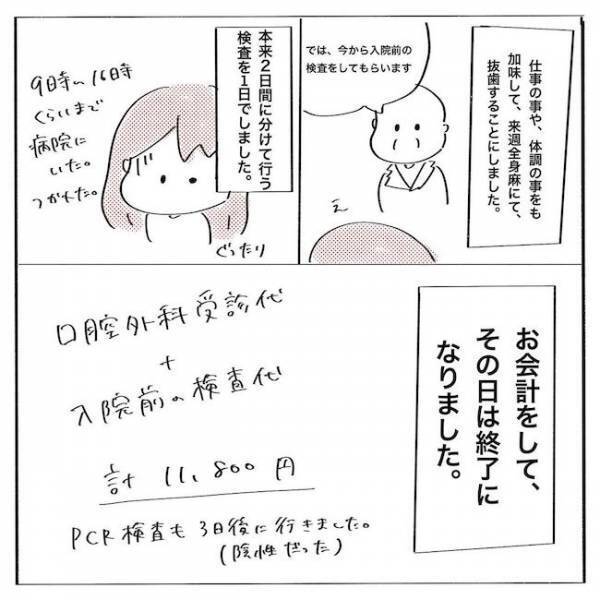 仕事の事や、体調の事をも
加味して、来週全身麻にて、
抜歯することにしました。
では、今から入院前の
検査をしてもらいます
え
本来2日間に分けて行う
検査を1日でしました。
9日時〜16時
くらいまで
病院に
いた。
つかれた。
ぐったり
お会計をして、
その日は終了に
なりました。
口腔外科受診代
+
入院前の検査代
計 11,800円
PCR検査も3日後に行きました。
(陰性だった)